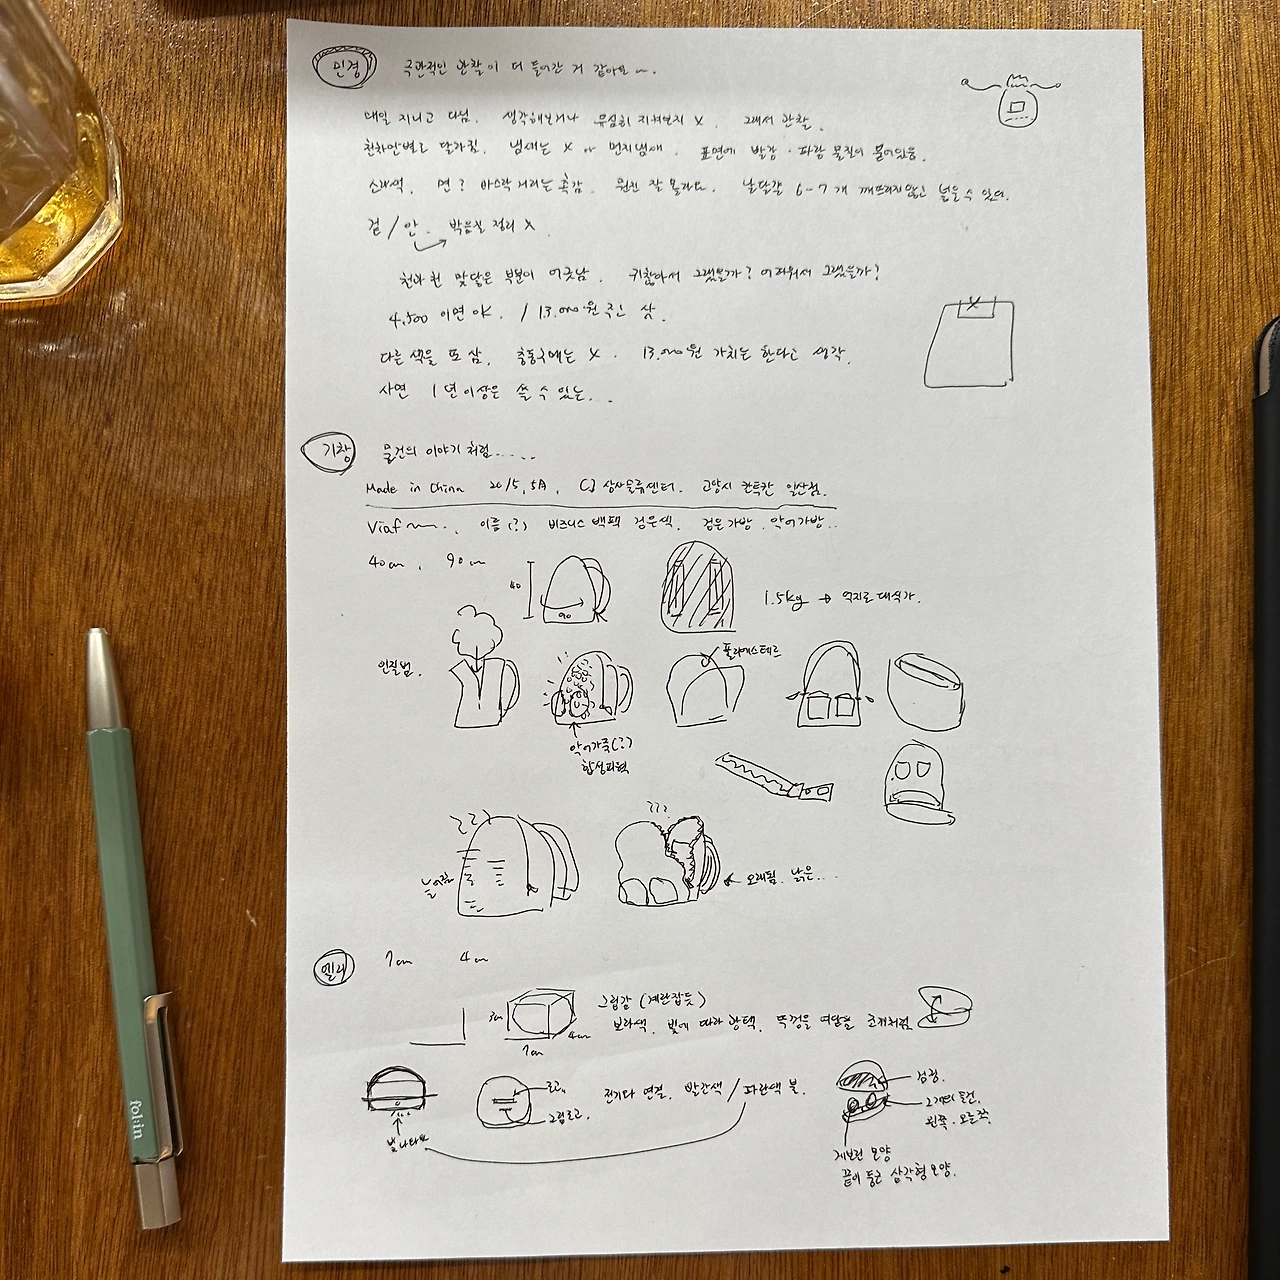 민경 주관적인 관찰이 더 들어간 거 같아요~.
매일 지니고 다님. 생각해보거나 유심히 지켜보지 X. 그래서 관찰.
천차만별로 달라짐. 냄새는 X or 먼지냄새. 표면에 빨강·파랑 물질이 묻어있음.
소재색. 면? 바스락 거리는 촉감. 뭔진 잘 몰라요. 날달걀 6-7개 깨뜨리지않고 넣을 수 있다.
겉/안. 박음질 정리 X.
천과 천 맞닿은 부분이 어긋남. 귀찮아서 그랬을까? 어려워서 그랬을까?
4,500 이면 OK. / 13.000원 주고 삼.
다른 색을 또 삼. 충동구매는 X. 13.000원 가치는 한다고 생각.
사면 1년이상은 쓸 수 있는...
기창 물건의 이야기 처럼.....
Made in China 2015, 5月, CJ 상사물류센터. 고양시 일산점.
이름(?) 비즈니스 백팩 검은색. 검은가방. 악어가방..
40cm, 90cm
40
90
1.5kg → 억지로 대식가.
인질범.
폴리에스테르
악어가죽(?)
합성피혁
???
늘어짐
오래됨. 낡은...
엘리 7cm 4cm
3cm
4cm
7cm
그립감 (계란잡듯)
보라색. 빛에 따라 광택. 뚜껑을 여닫을 조개처럼
로고
그림로고.
전기와 연결. 빨간색 / 파란색 불.
빛나타남
검정.
2개의 물건.
왼쪽. 오른쪽.
끝이 둥근 삼각형모양.
fol:in